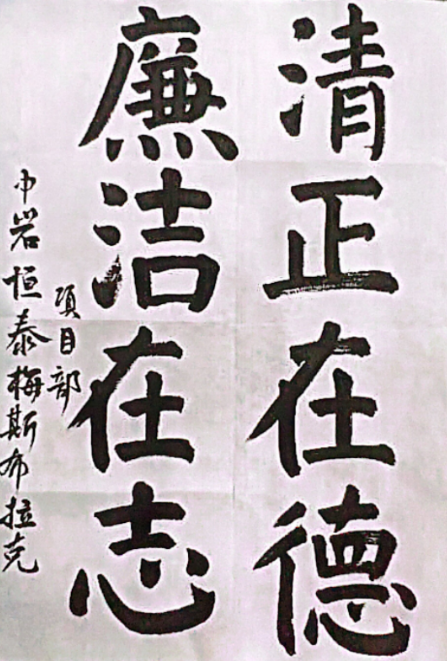 清正在德
廉洁在志
中岩恒泰梅斯布拉克
项目部